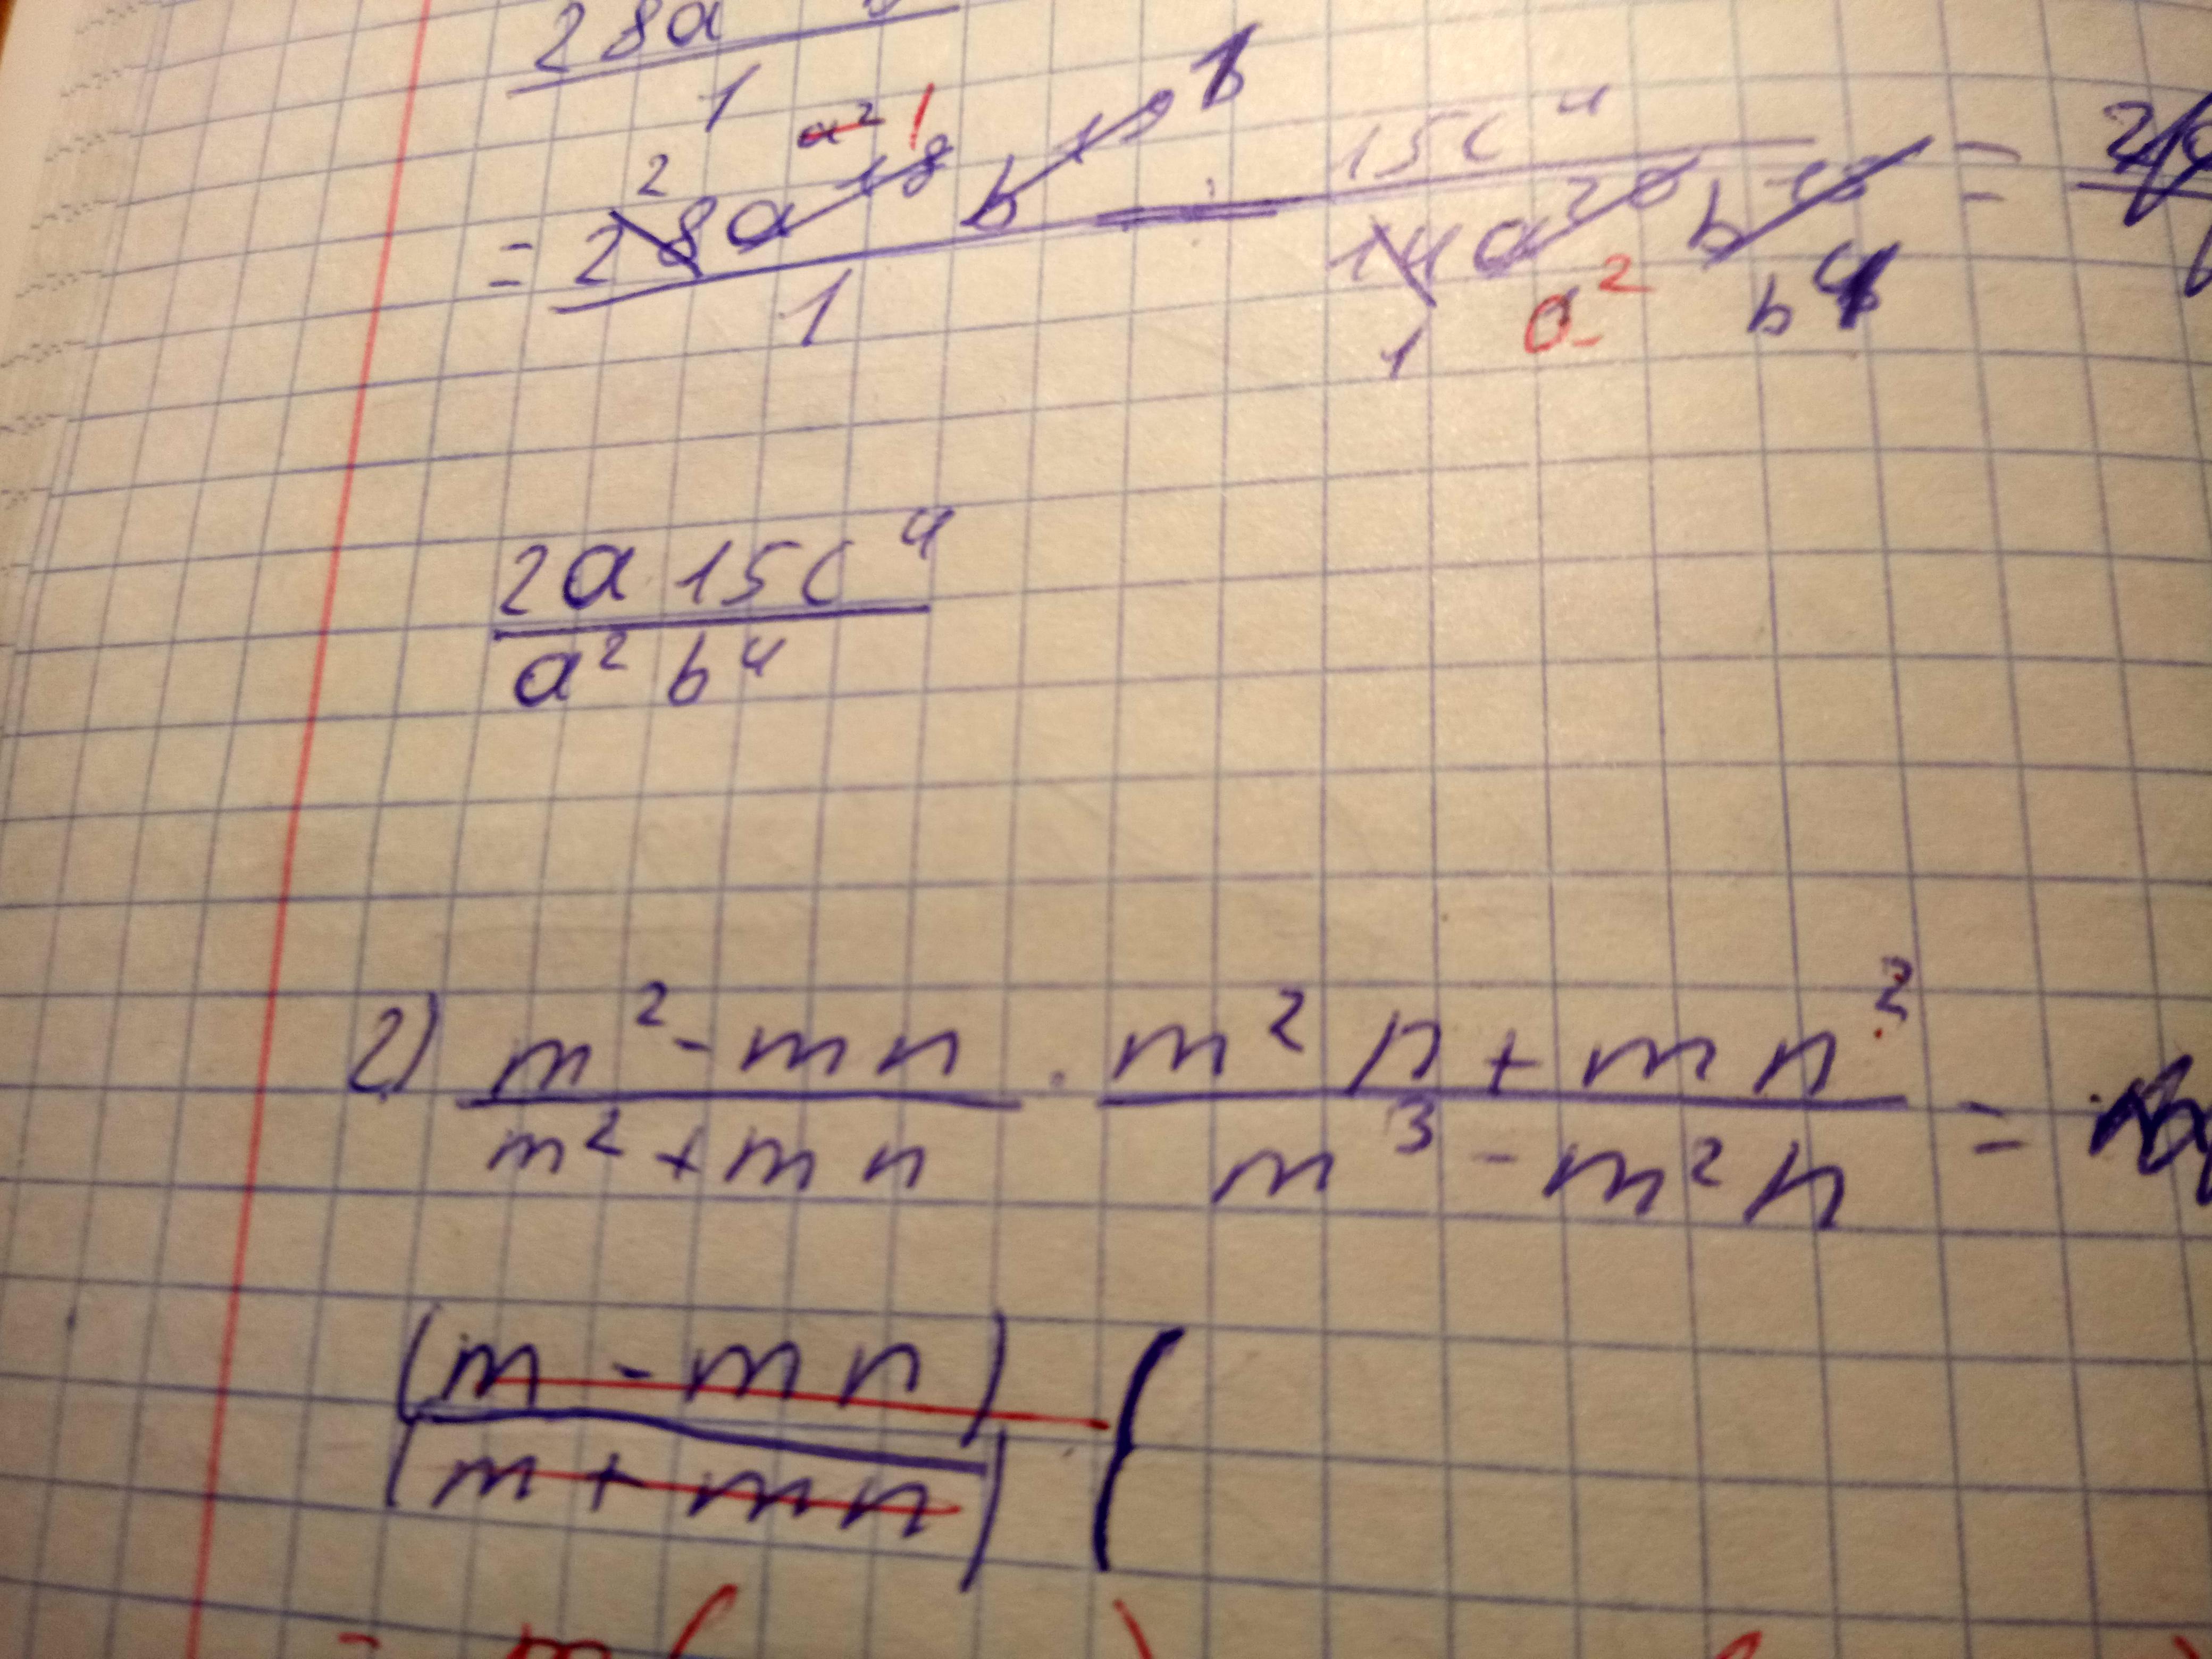 28a
1
a² 1
2 1
= 28a¹⁸ b / 1 · 15c⁴ / 14a²⁰ b =
1 a² b⁴
2a 15c⁴ / a² b⁴
2) m² - mn / m² + mn · m² n + mn² / m³ - m² n =
(m - mn) / (m + mn) (
= m( )